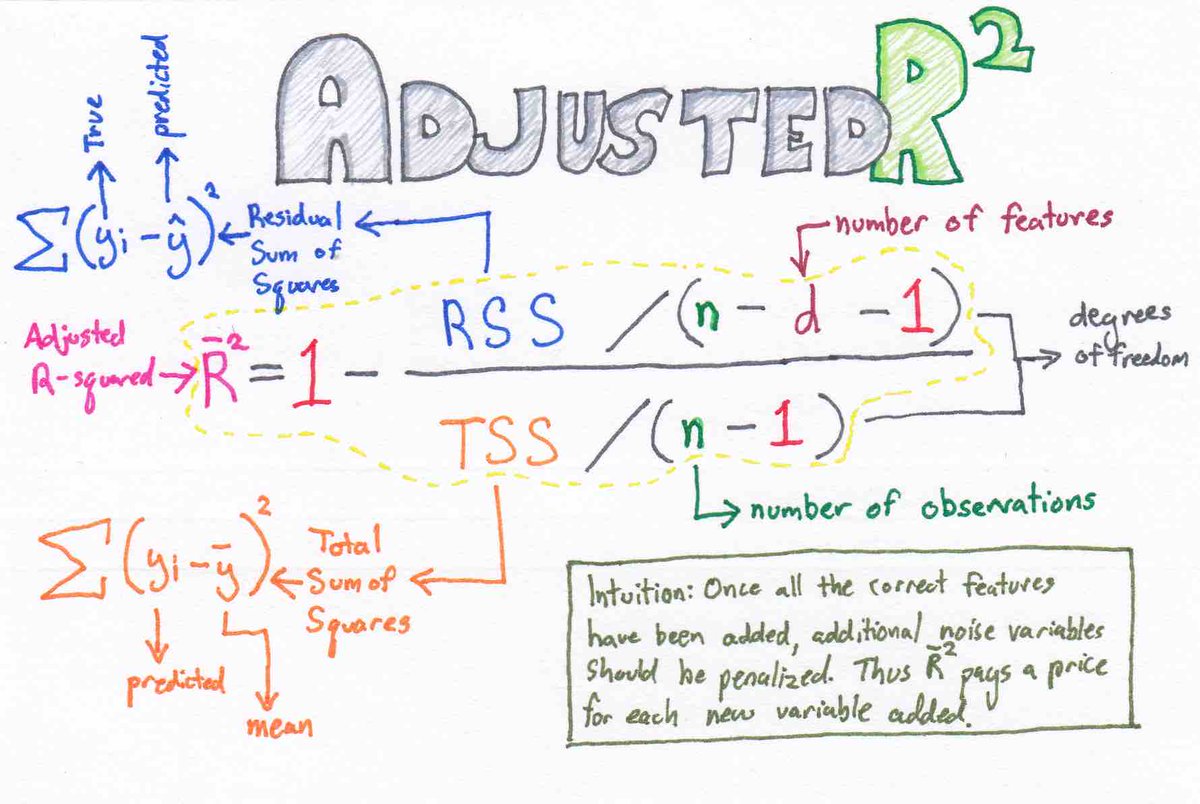 ADJUSTED R²
True
predicted
∑(yi - ŷ)²
Residual
Sum of
Squares
number of features
Adjusted
R-squared
R̄² = 1 - RSS /(n - d - 1)
TSS /(n - 1)
degrees
of freedom
number of observations
∑(yi - ȳ)²
Total
Sum of
Squares
predicted
mean
Intuition: Once all the correct features
have been added, additional noise variables
should be penalized. Thus R̄² pays a price
for each new variable added.